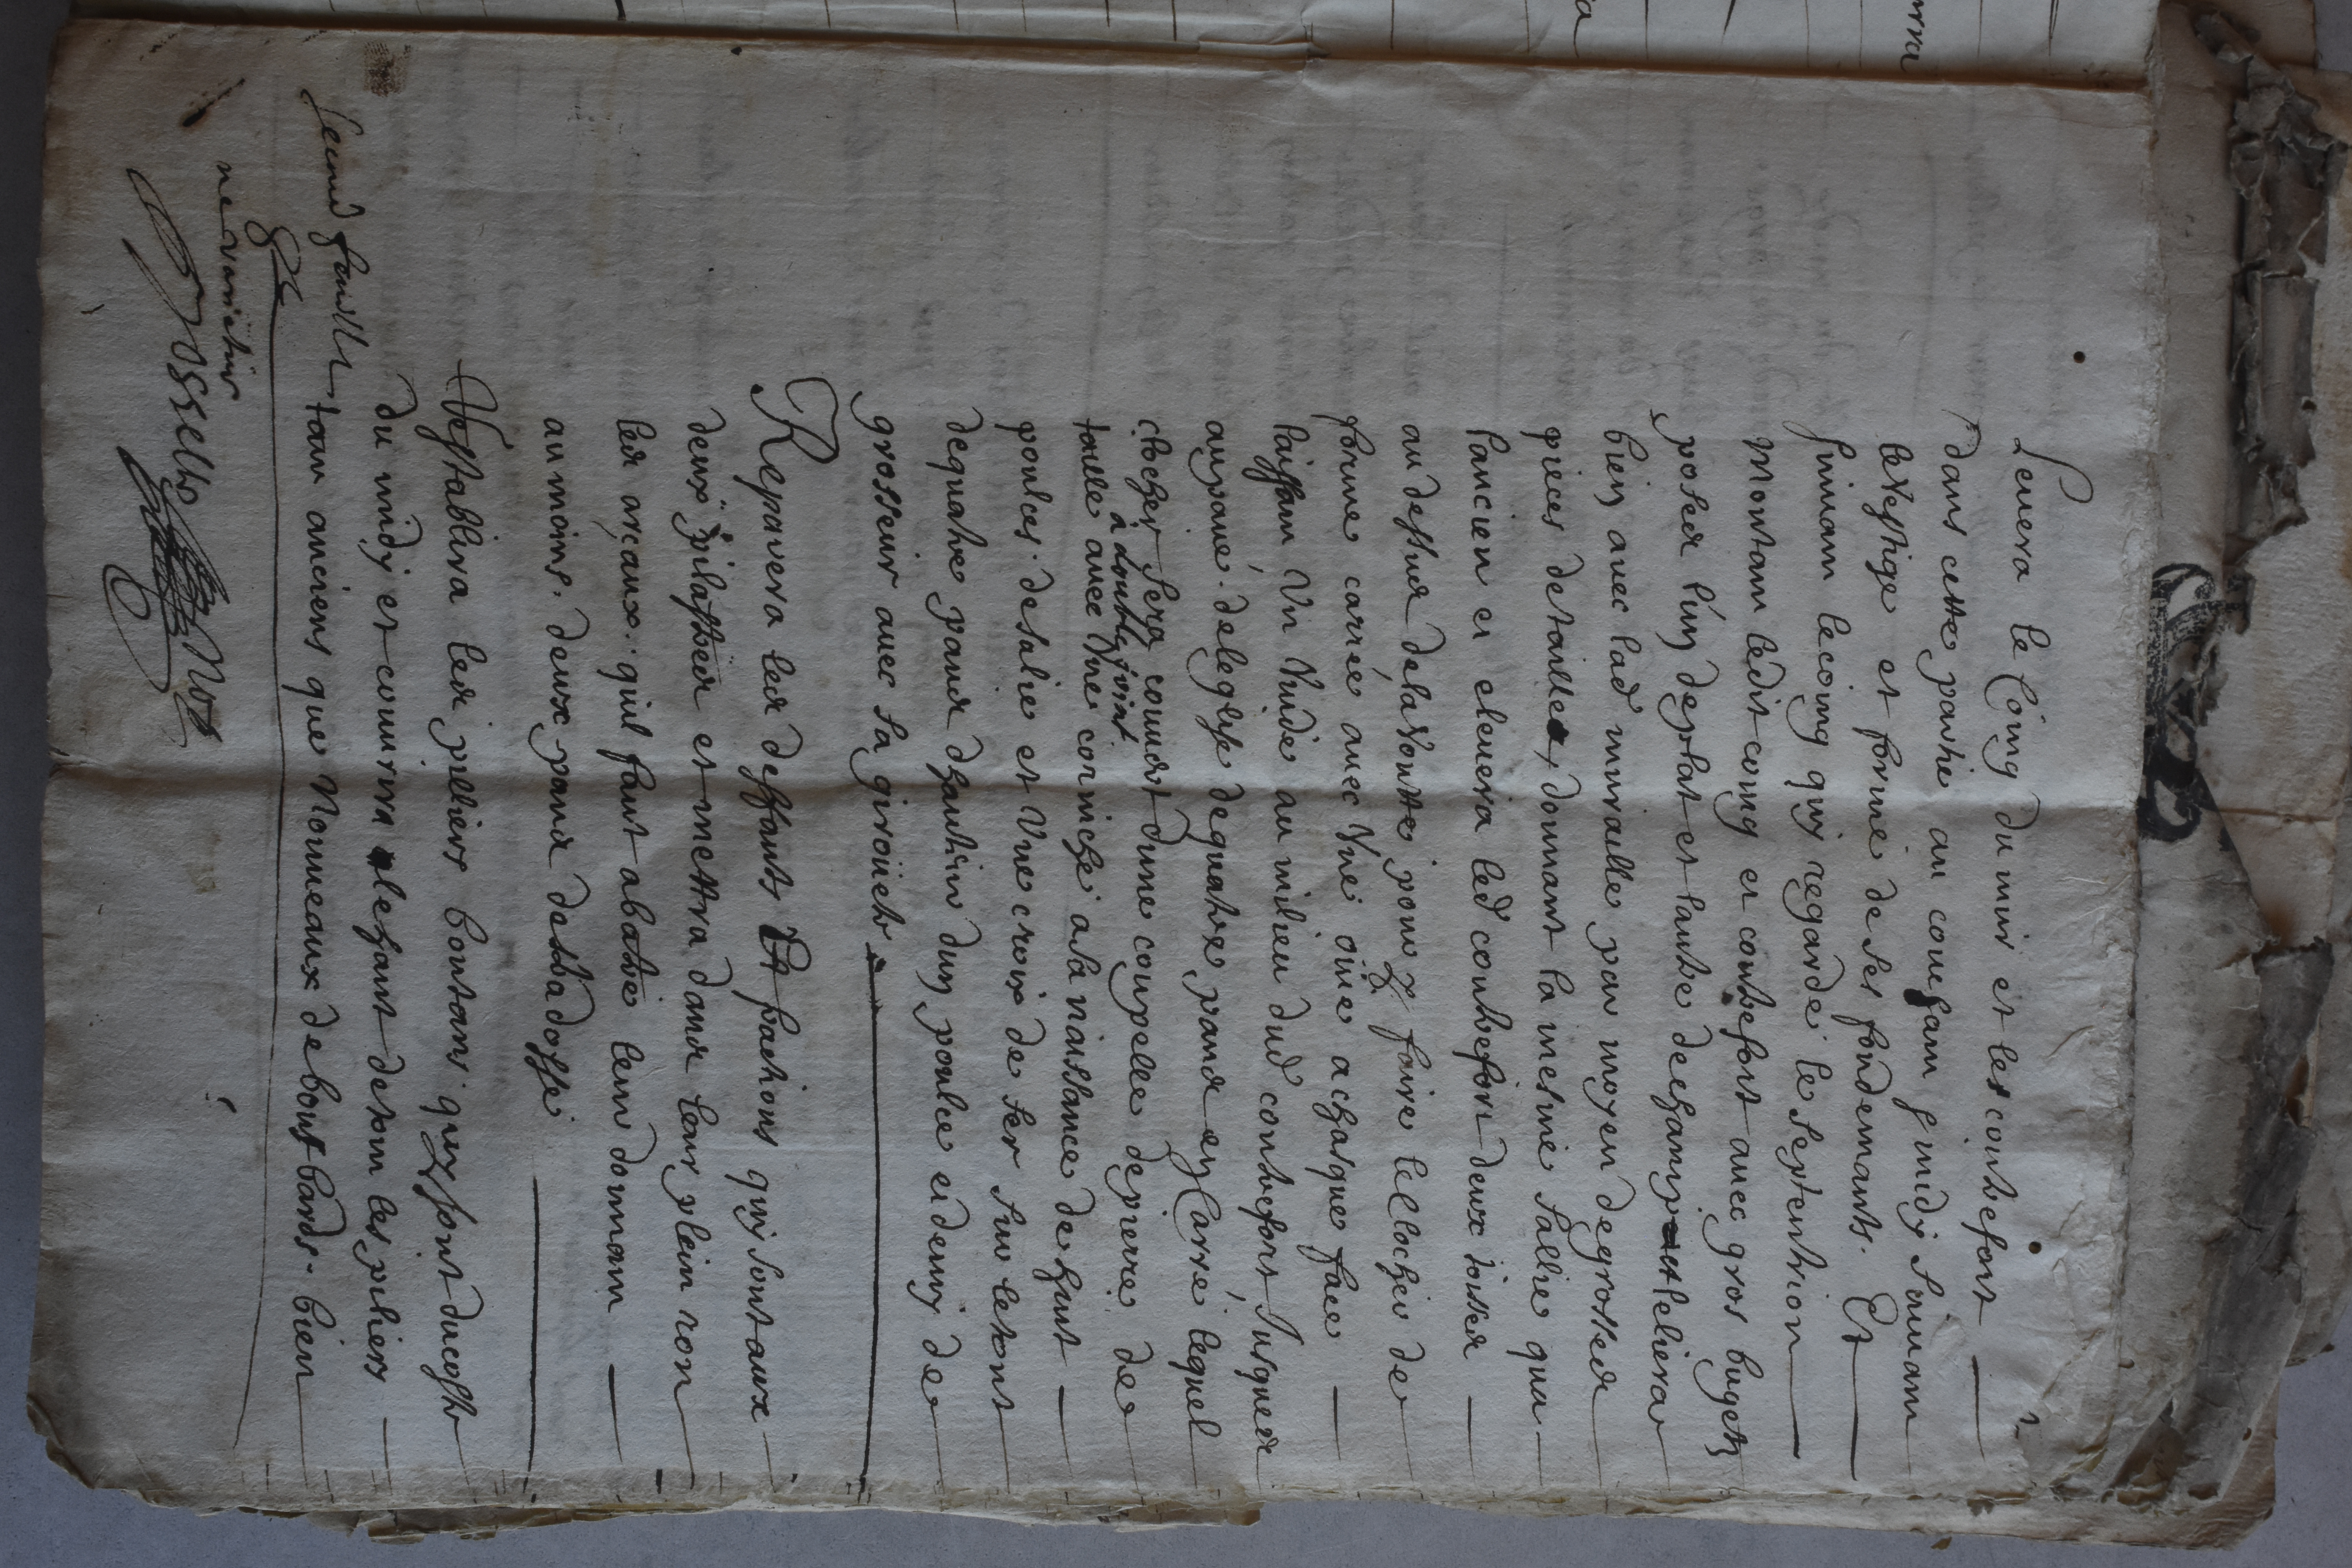 Levera le Coing du mur et les contrefort
dans cette partie au couchant Joindy Suivant
le vestige et forme de ses fondemants. Et
Suivant le coing quy regarde le septentrion
Montant ledit coing et contrefort avec gros bugetz
posed l'un de plat et lautre de champ et le liera
bien avec lad muraille par moyen de grosses
pieces de taille, donnant la mesme sallie que
l'ancien et elevera led contrefort deux toises
au dessus de la voutte pour y faire le clocher de
forme carrée avec une ouie a chasque face
laissant un vuide au milieu dud contrefort Jusques
au pavé de leglise de quatre pands en Carré, lequel
clocher sera couvert dune couppelle de pierre de
a double joint
taille avec une corniche a sa naissance de huit
poulces de salie et une croix de fer sur le tout
de quatre pands dhauteur dun poulce et demy de
grosseur avec sa girouete
Reparera les deffauts Et fractions quy sont aux
deux pilastres et mettra dans leur plein ron
les arceaux quil faut abatre leur donnant
au moins deux pands de badosse
Restablira les pilliers boutans quy sont du costé
du midy et couvrira le haut de tous les piliers
tant anciens que Nouveaux de bouts bards bien
second feuillet
ne varietur
Rossello Not